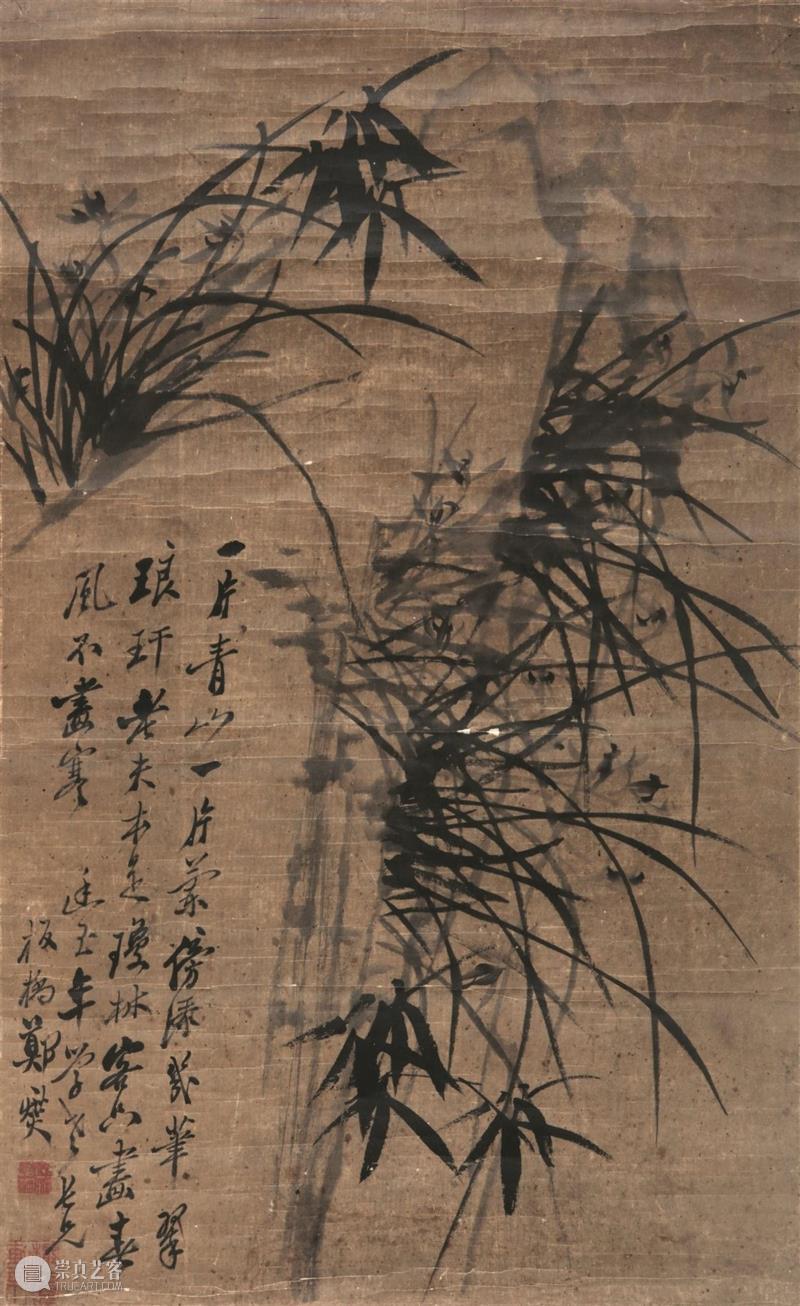 一片青山一片蘭傍添幾筆翠
琅玕老夫本是瓊林客只畫春
風不畫寒
玉年學老長兄
板橋鄭燮
崇真艺客
TRUE-ART.COM